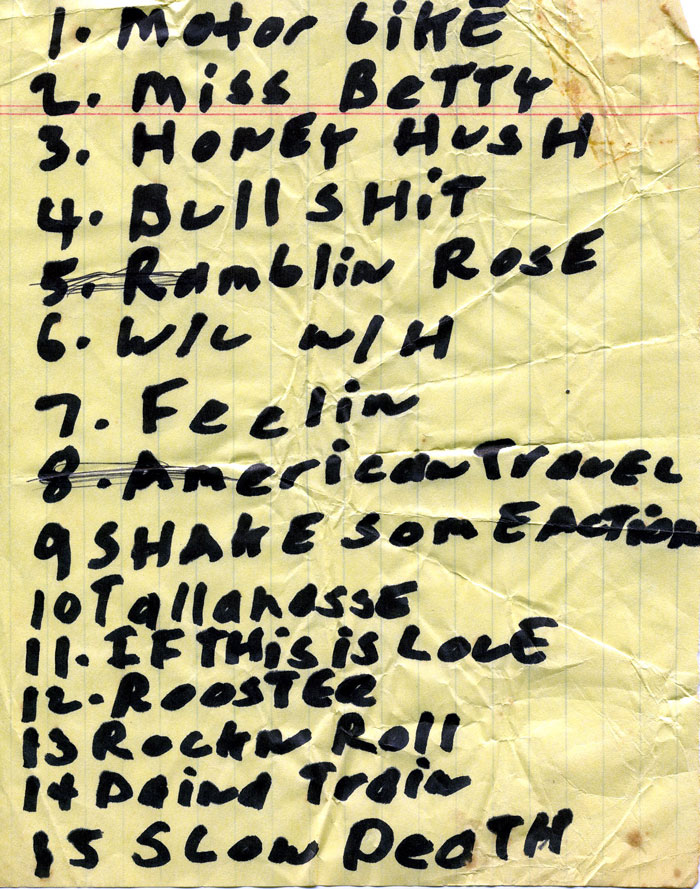 1. Motor bikE
2. Miss BeTTy
3. HONEy HusH
4. BullsHiT
5. Ramblin RosE
6. W/c w/H
7. Feelin
8. AmericanTravEL
9 SHAkE SomE Action
10 TallahassE
11. IF THis is LovE
12. RoosTER
13 Rockn Roll
14 Train
15 SLow DeaTH